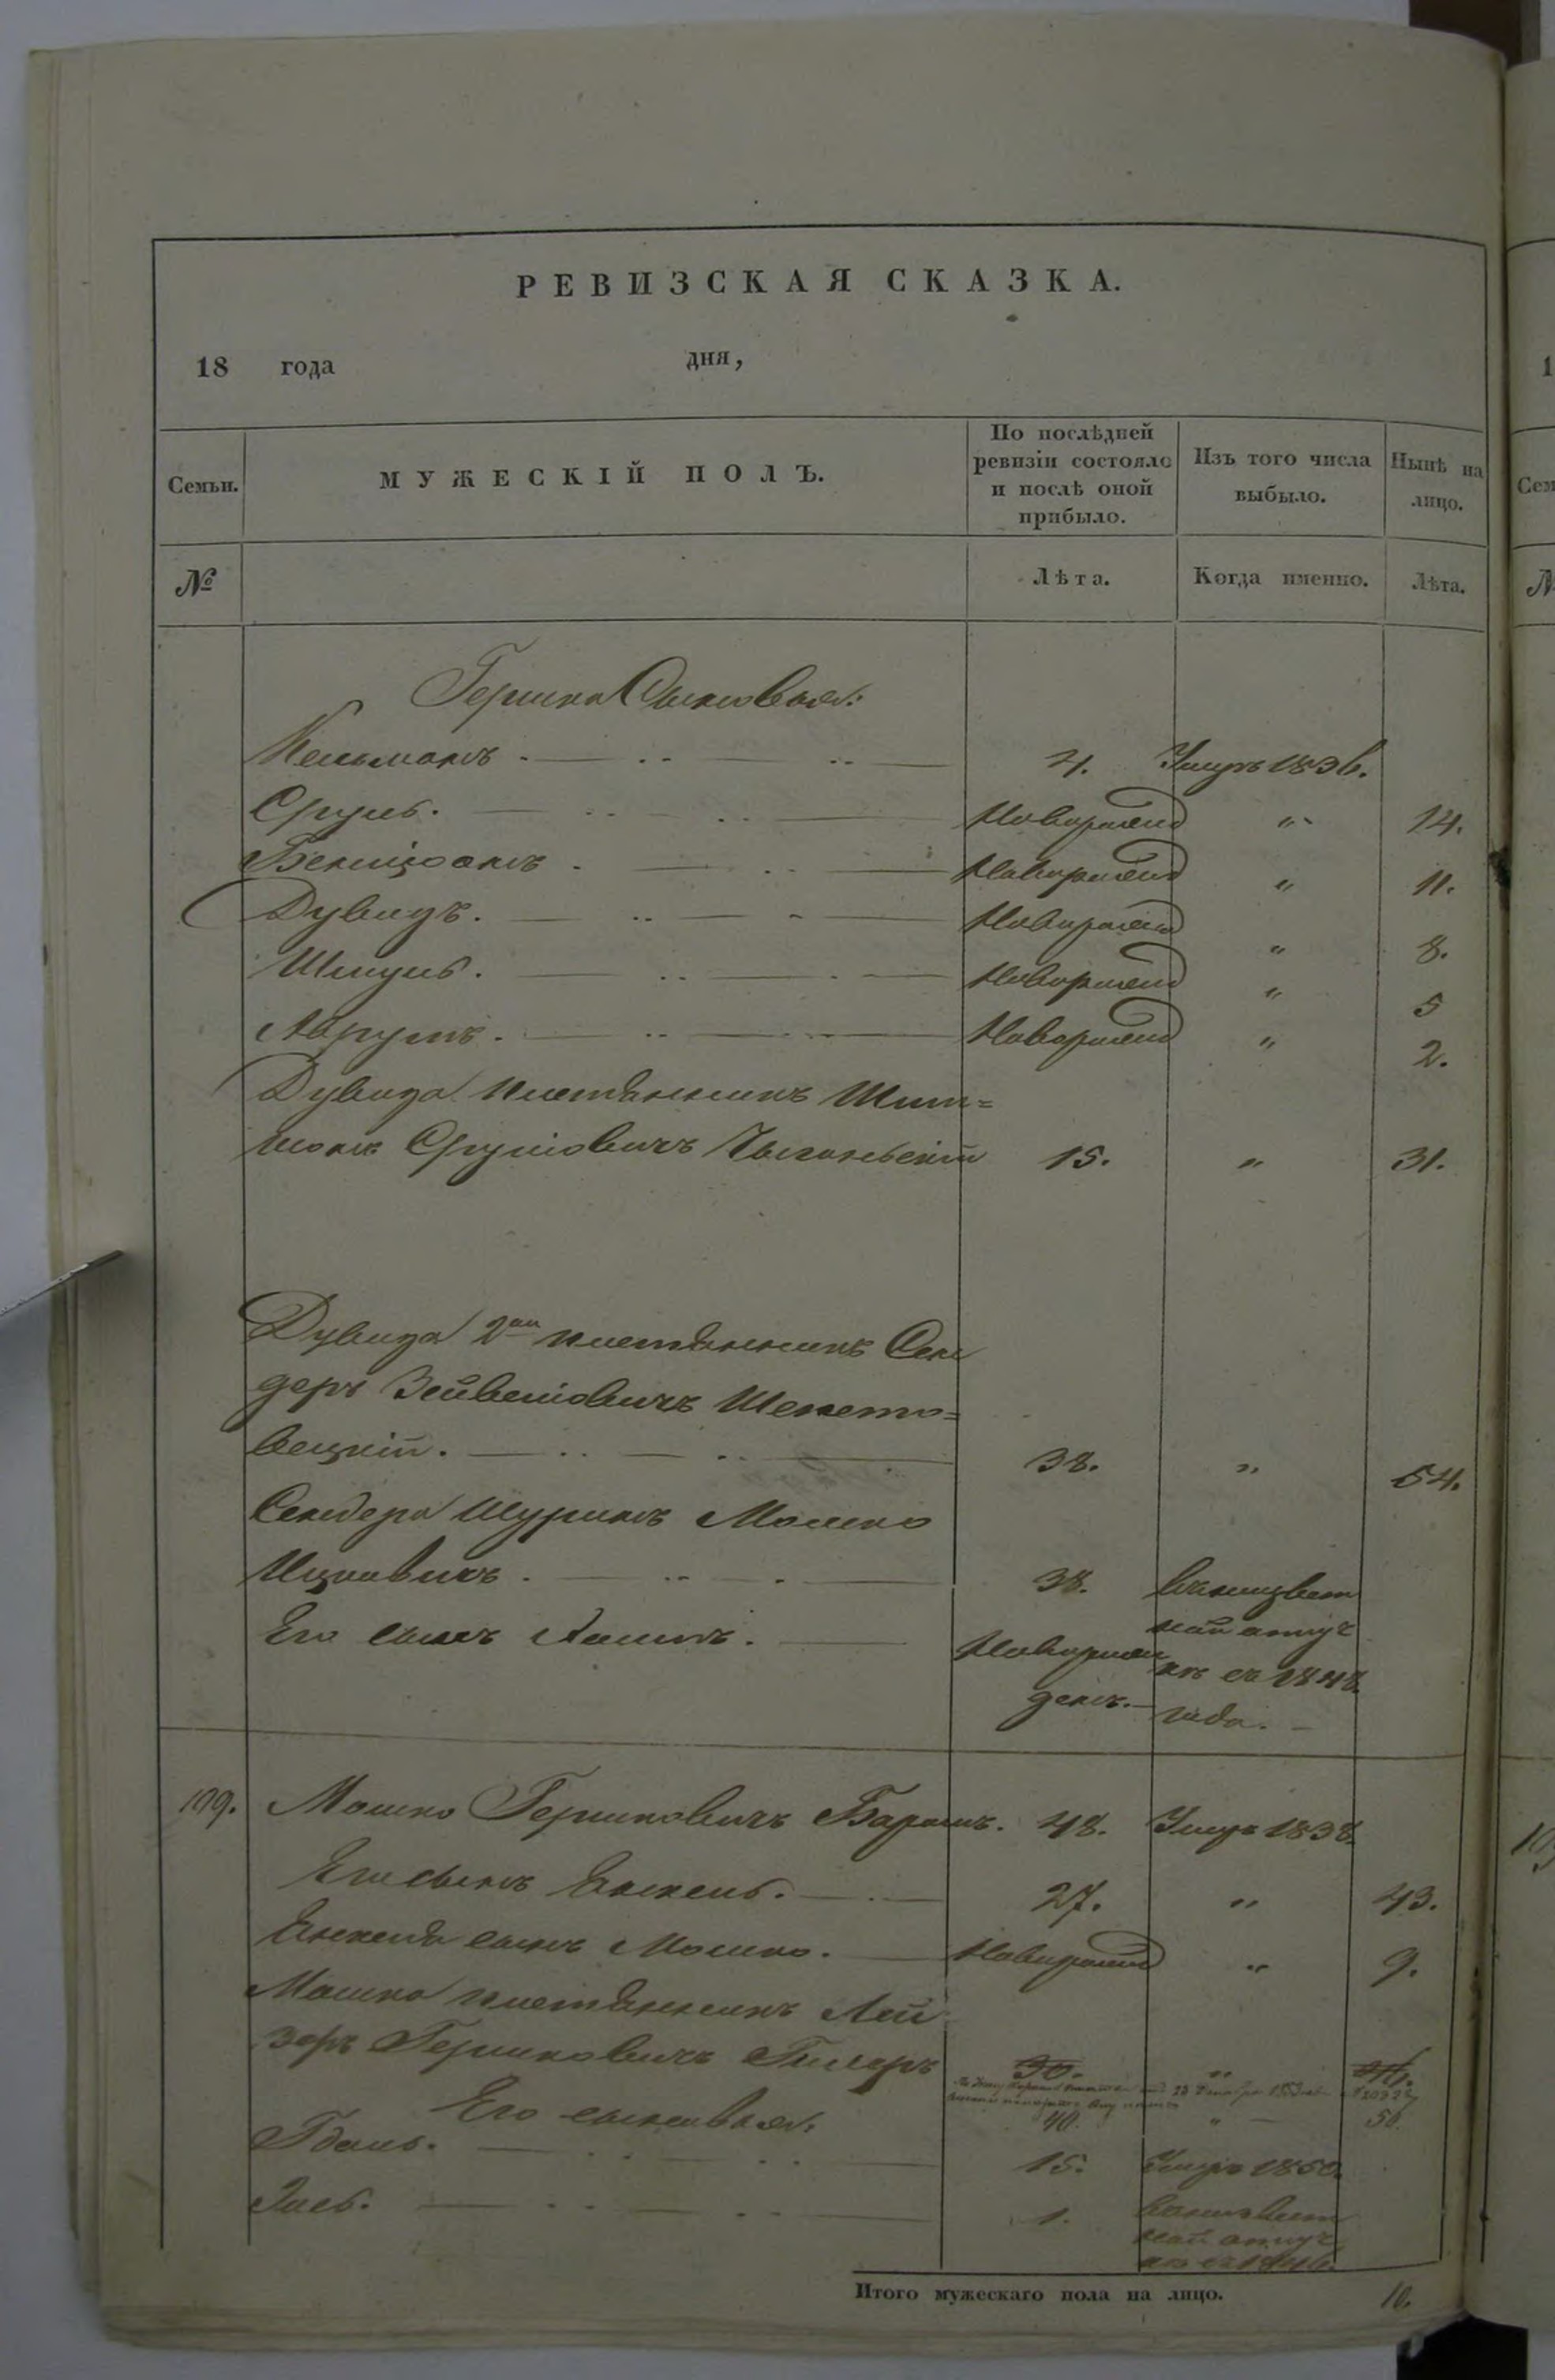 РЕВИЗСКАЯ СКАЗКА.
18 года дня,
Семьи. МУЖЕСКІЙ ПОЛЪ. По послѣдней ревизіи состояло и послѣ оной прибыло. Изъ того числа выбыло. Нынѣ на лицо.
№ Лѣта. Когда именно. Лѣта.
Гершка Сыновья:
Кельманъ. 4. Умеръ 1836.
Сруль. Новорожд " 14.
Бенціонъ. Новорожд " 11.
Дувидъ. Новорожд " 8.
Шмуль. Новорожд " 5
Аврумъ. Новорожд " 2.
Дувида племянникъ Шим=
шонъ Сруліовичъ 15. " 31.
Дувида 2ой племянникъ Сен
деръ Зейвеліовичъ Шепето=
вецкій. 38. " 54.
Сендера Шуринъ Мошко
Ицковичъ. 38. в безъизвѣст
Его сынъ Новорож ной отлуч
денъ. кѣ съ 1848
года.
199. Мошко Гершковичъ Барашъ. 48. Умеръ 1838.
Его сынъ Янкель. 27. " 43.
Янкеля сынъ Мошко. Новорожд " 9.
Мошка племянникъ Лей
зеръ Гершковичъ 30. "
40. " 56
Его сыновья:
15. Умеръ 1850.
1. в безъизвѣст
ной отлуч
кѣ съ 1846.
Итого мужескаго пола на лицо. 10.